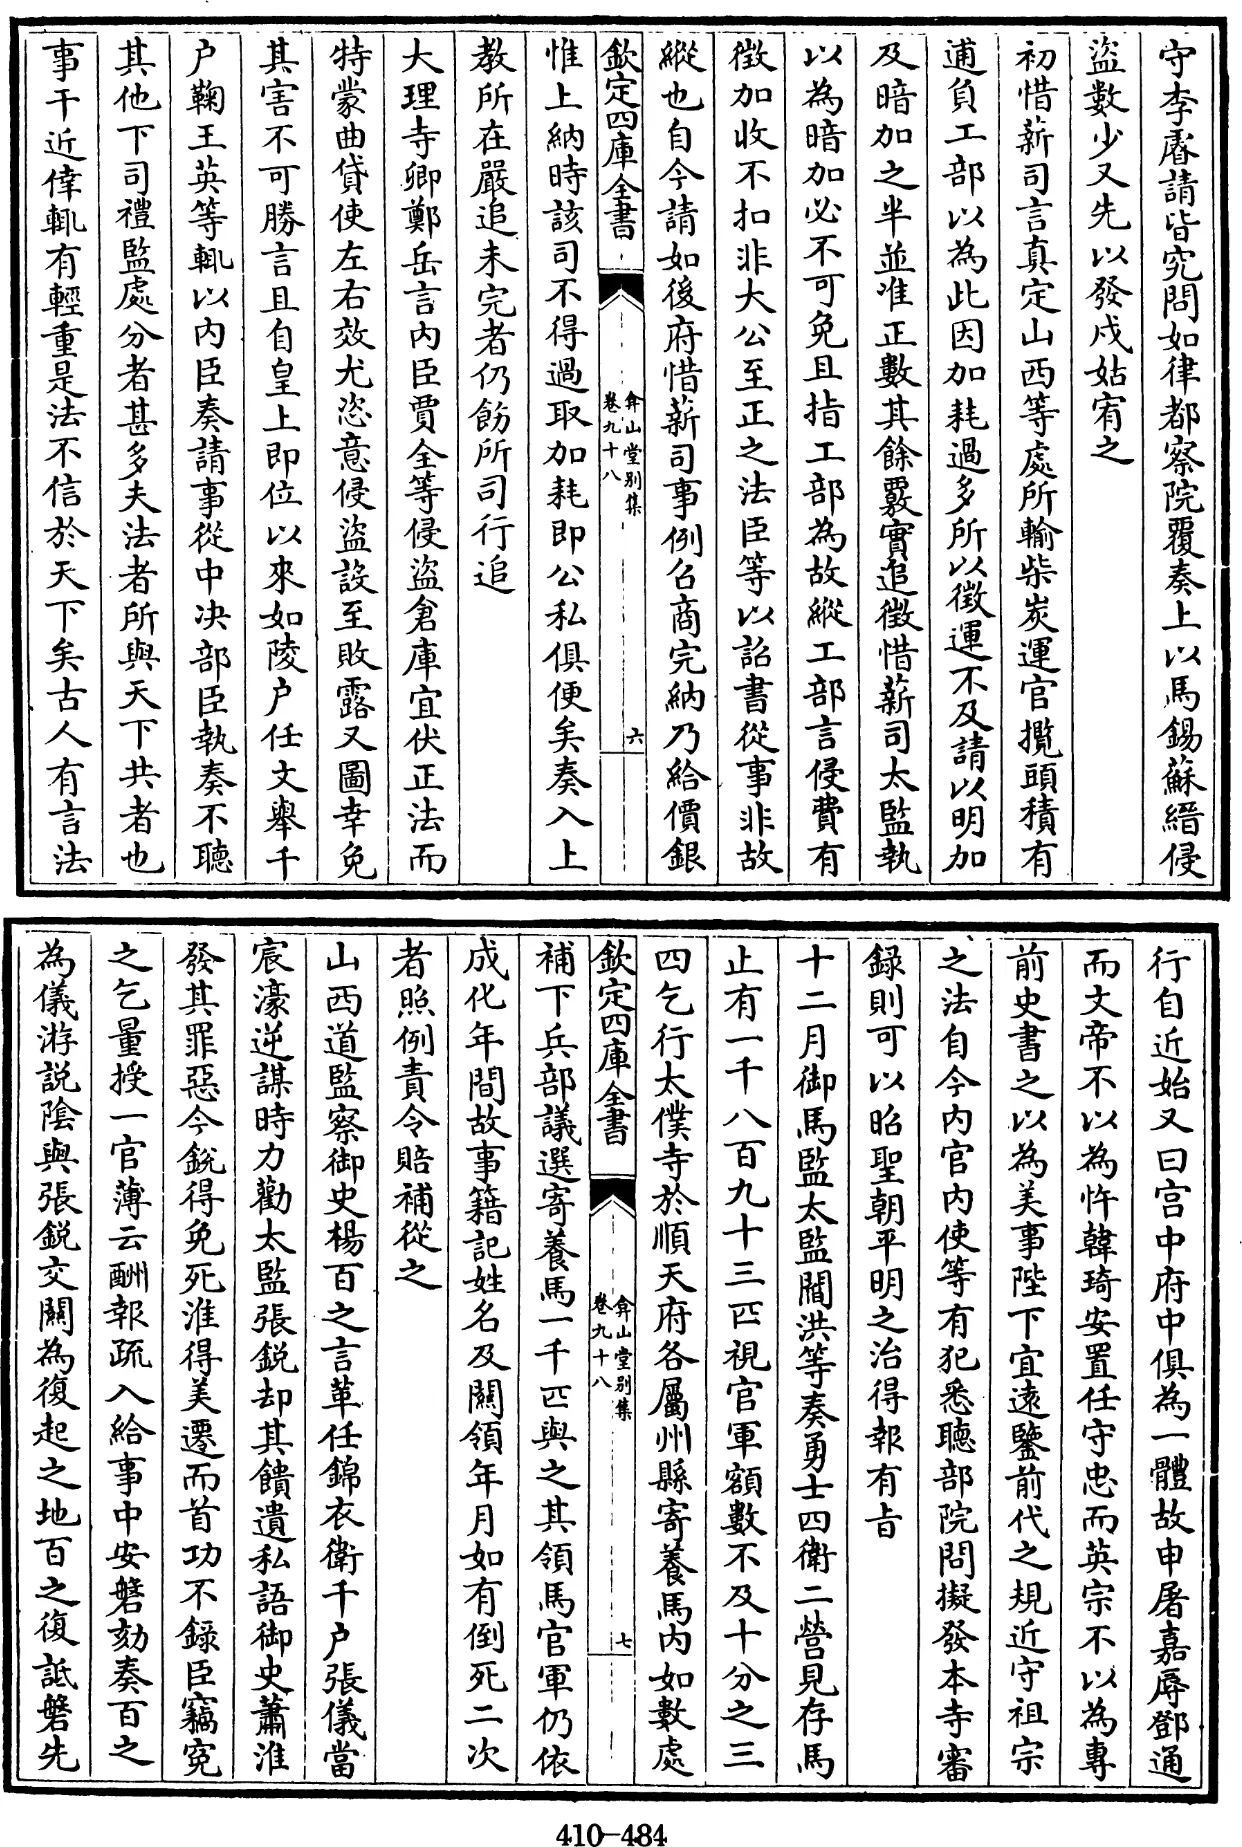 守李廌請皆究問如律都察院覆奏上以馬錫蘇縉侵
盜數少又先以發戍姑宥之
初惜薪司言真定山西等處所輸柴炭運官攬頭積有
逋負工部以為此因加耗過多所以徵運不及請以明加
及暗加之半並准正數其餘覈實追徵惜薪司太監執
以為暗加必不可免且指工部為故縱工部言侵費有
徵加收不扣非大公至正之法臣等以詔書從事非故
縱也自今請如後府惜薪司事例召商完納乃給價銀
欽定四庫全書
弇山堂別集
卷九十八
六
惟上納時該司不得過取加耗即公私俱便矣奏入上
教所在嚴追未完者仍飭所司行追
大理寺卿鄭岳言内臣賈全等侵盜倉庫宜伏正法而
特蒙曲貸使左右效尤恣意侵盜設至敗露又圖幸免
其害不可勝言且自皇上即位以來如陵户任文舉千
户鞠王英等輒以内臣奏請事從中决部臣執奏不聽
其他下司禮監處分者甚多夫法者所與天下共者也
事干近倖輒有輕重是法不信於天下矣古人有言法
行自近始又曰宫中府中俱為一體故申屠嘉辱鄧通
而文帝不以為忤韓琦安置任守忠而英宗不以為專
前史書之以為美事陛下宜遠鑒前代之規近守祖宗
之法自今内官内使等有犯悉聽部院問擬發本寺審
録則可以昭聖朝平明之治得報有旨
十二月御馬監太監閻洪等奏勇士四衛二營見存馬
止有一千八百九十三匹視官軍額數不及十分之三
四乞行太僕寺於順天府各屬州縣寄養馬内如數處
欽定四庫全書
弇山堂別集
卷九十八
七
補下兵部議選寄養馬一千匹與之其領馬官軍仍依
成化年間故事籍記姓名及關領年月如有倒死二次
者照例責令賠補從之
山西道監察御史楊百之言革任錦衣衛千户張儀當
宸濠逆謀時力勸太監張鋭却其饋遺私語御史蕭淮
發其罪惡今鋭得免死淮得美遷而首功不録臣竊寃
之乞量授一官薄云酬報疏入給事中安磐劾奏百之
為儀游説陰與張鋭交關為復起之地百之復詆磐先
410-484